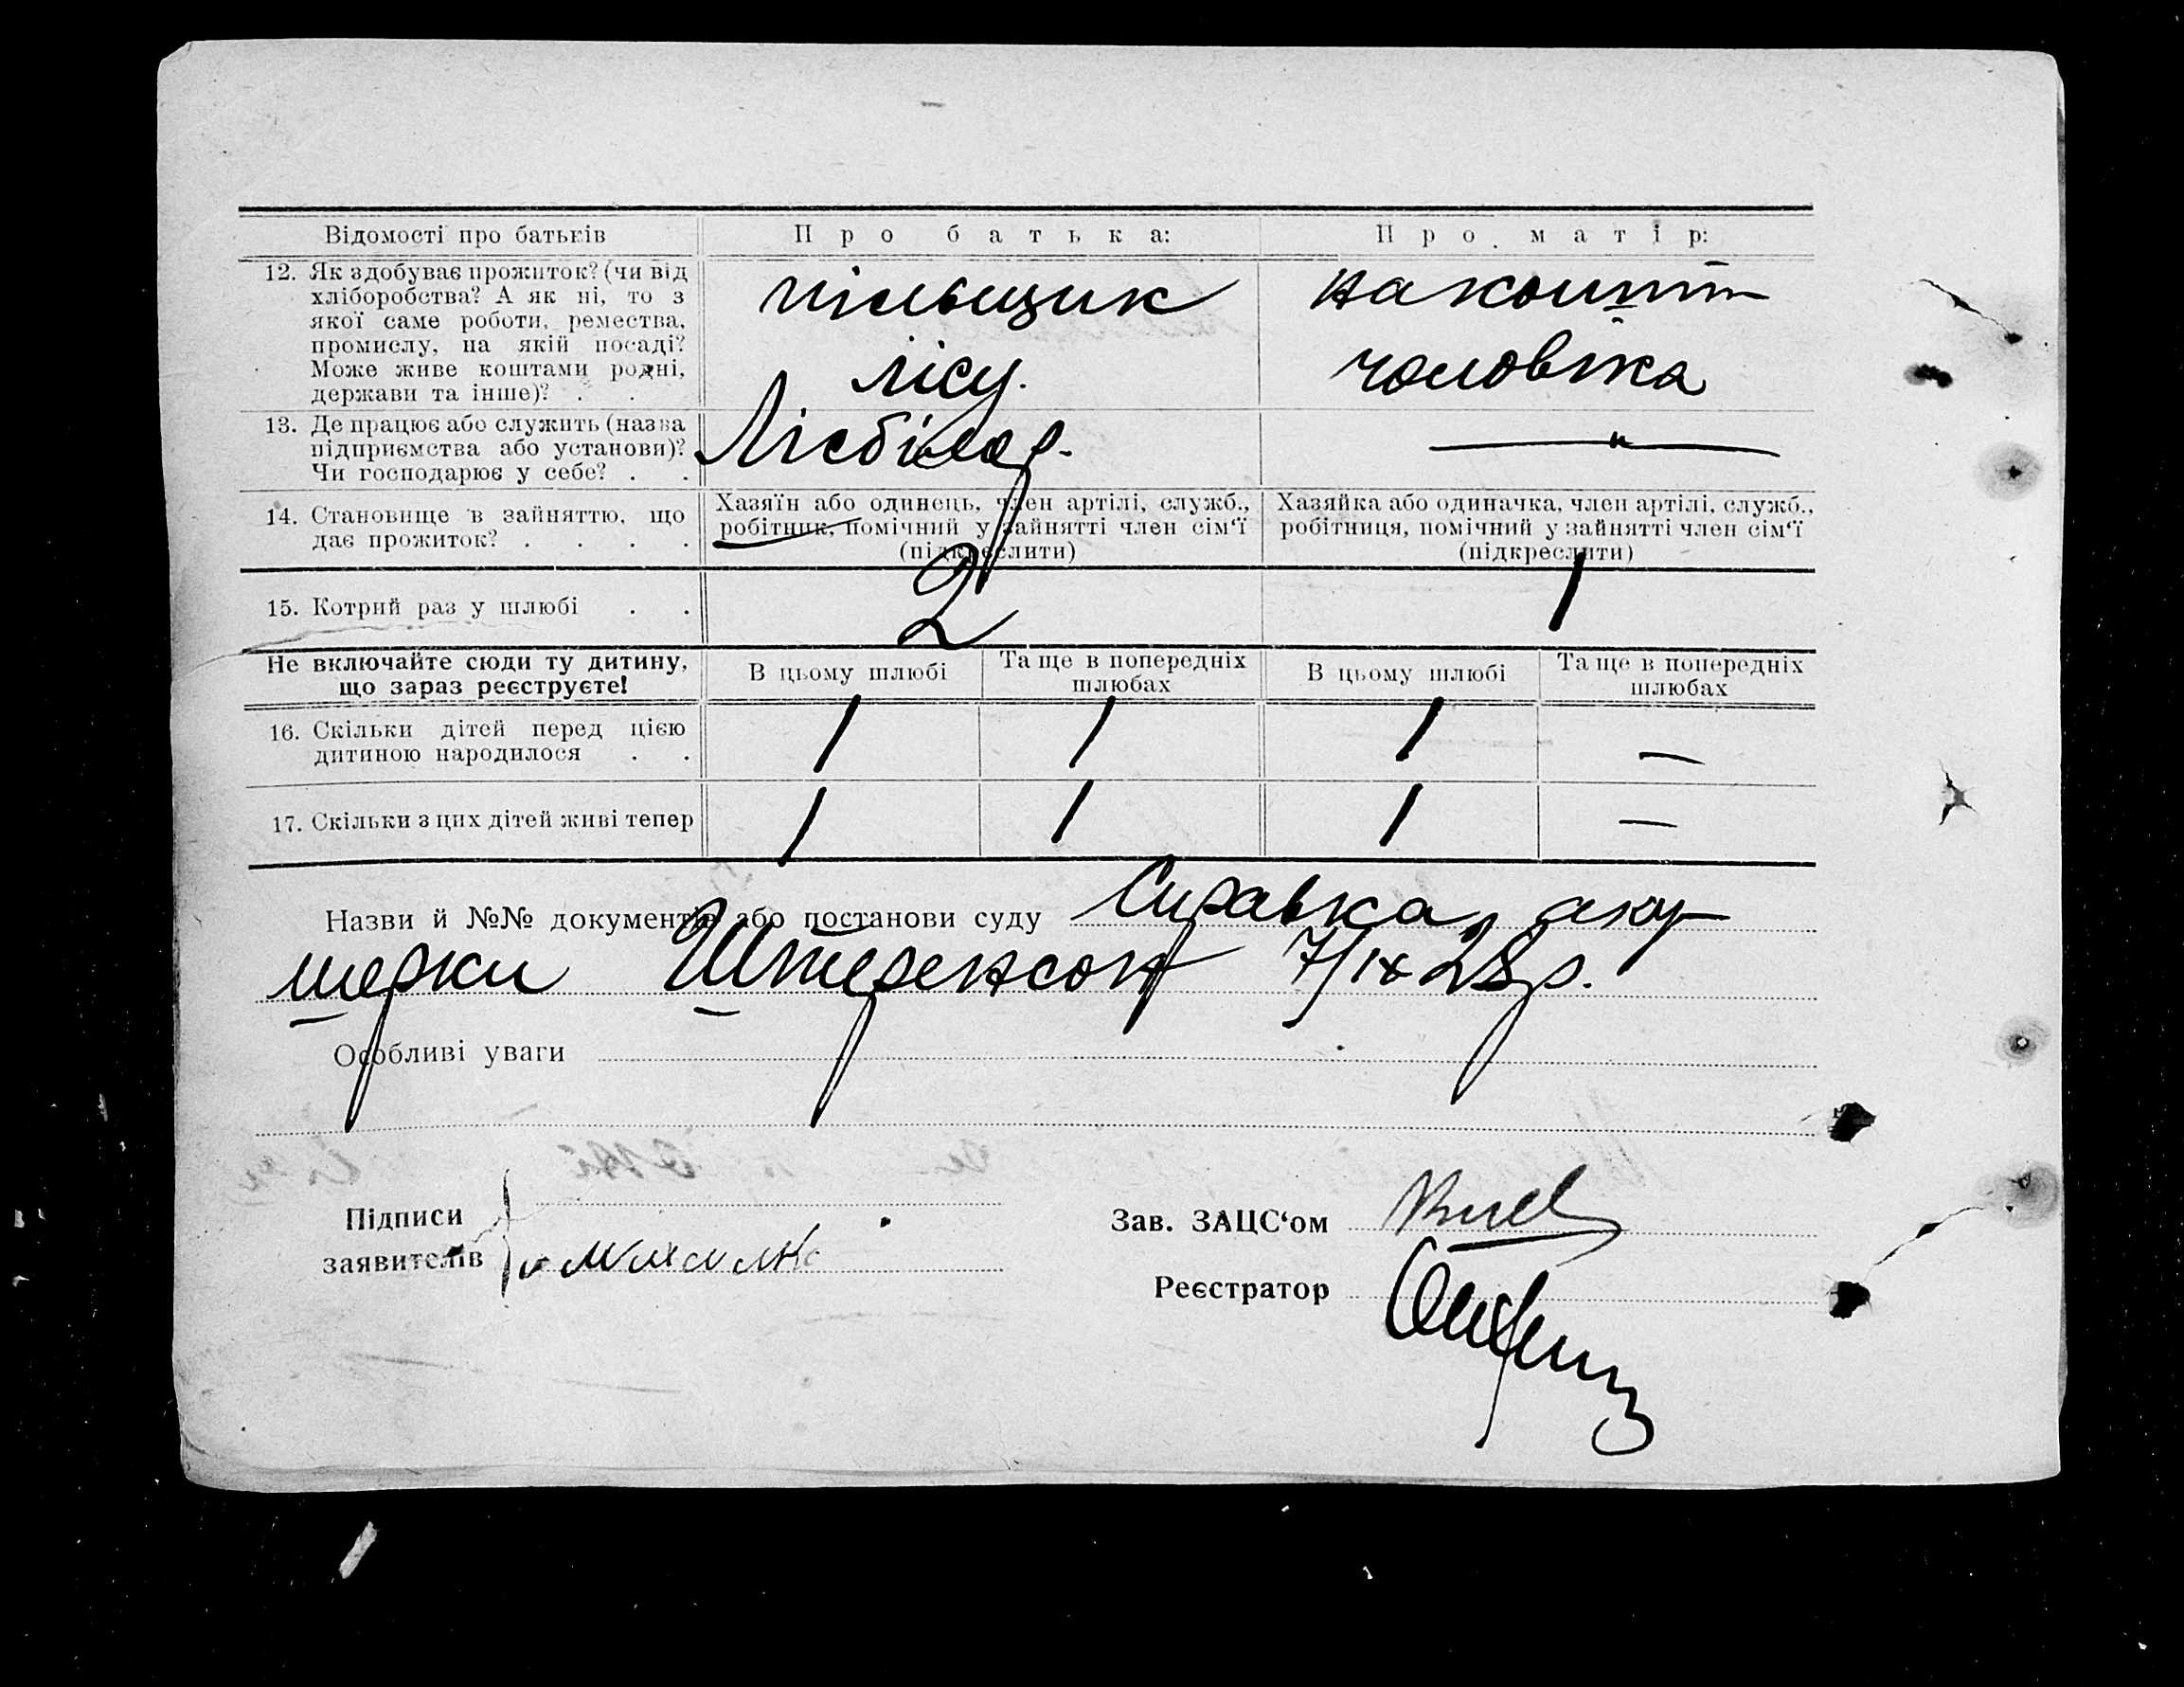 Відомості про батьків
Про батька:
Про матір:
12. Як здобуває прожиток? (чи від
хліборобства? А як ні, то з
якої саме роботи, ремества,
промислу, на якій посаді?
Може живе коштами родні,
держави та інше)? . .
пільщик
лісу.
на кошти
чоловіка
13. Де працює або служить (назва
підприємства або установи)?
Чи господарює у себе? . .
— " —
14. Становище в зайняттю, що
дає прожиток? . . . .
Хазяїн або одинець, член артілі, служб.,
робітник, помічний у зайнятті член сім'ї
(підкреслити)
Хазяйка або одиначка, член артілі, служб.,
робітниця, помічний у зайнятті член сім'ї
(підкреслити)
15. Котрий раз у шлюбі . .
2
1
Не включайте сюди ту дитину,
що зараз реєструєте!
В цьому шлюбі
Та ще в попередніх
шлюбах
В цьому шлюбі
Та ще в попередніх
шлюбах
16. Скільки дітей перед цією
дитиною народилося . .
1
1
1
—
17. Скільки з цих дітей живі тепер
1
1
1
—
Назви й №№ документів або постанови суду Справка аку-
шерки Штеренсон 7/IX 28р.
Особливі уваги
Підписи
заявителів
Зав. ЗАЦС'ом
Реєстратор